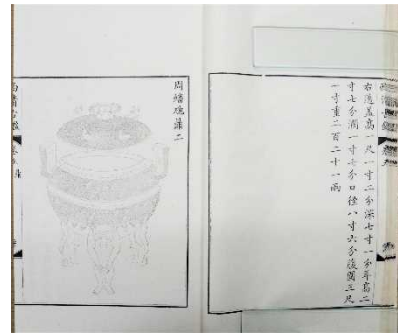 右通蓋高一尺一寸二分深七寸一分耳高二
寸七分闊一寸七分口徑八寸六分腹圍三尺
一寸重二百二十一兩
周蟠虺鼎二
西清古鑑